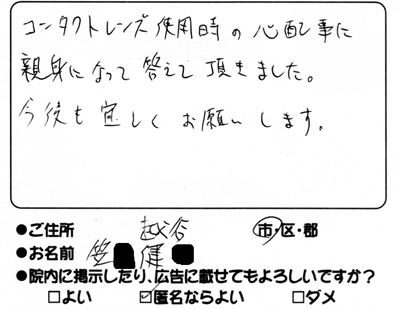 コンタクトレンズ使用時の心配事に
親身になって答えて頂きました。
今後も宜しくお願いします。
●ご住所 越谷 市・区・郡
●お名前 笠 健
●院内に掲示したり、広告に載せてもよろしいですか?
□よい ☑匿名ならよい □ダメ